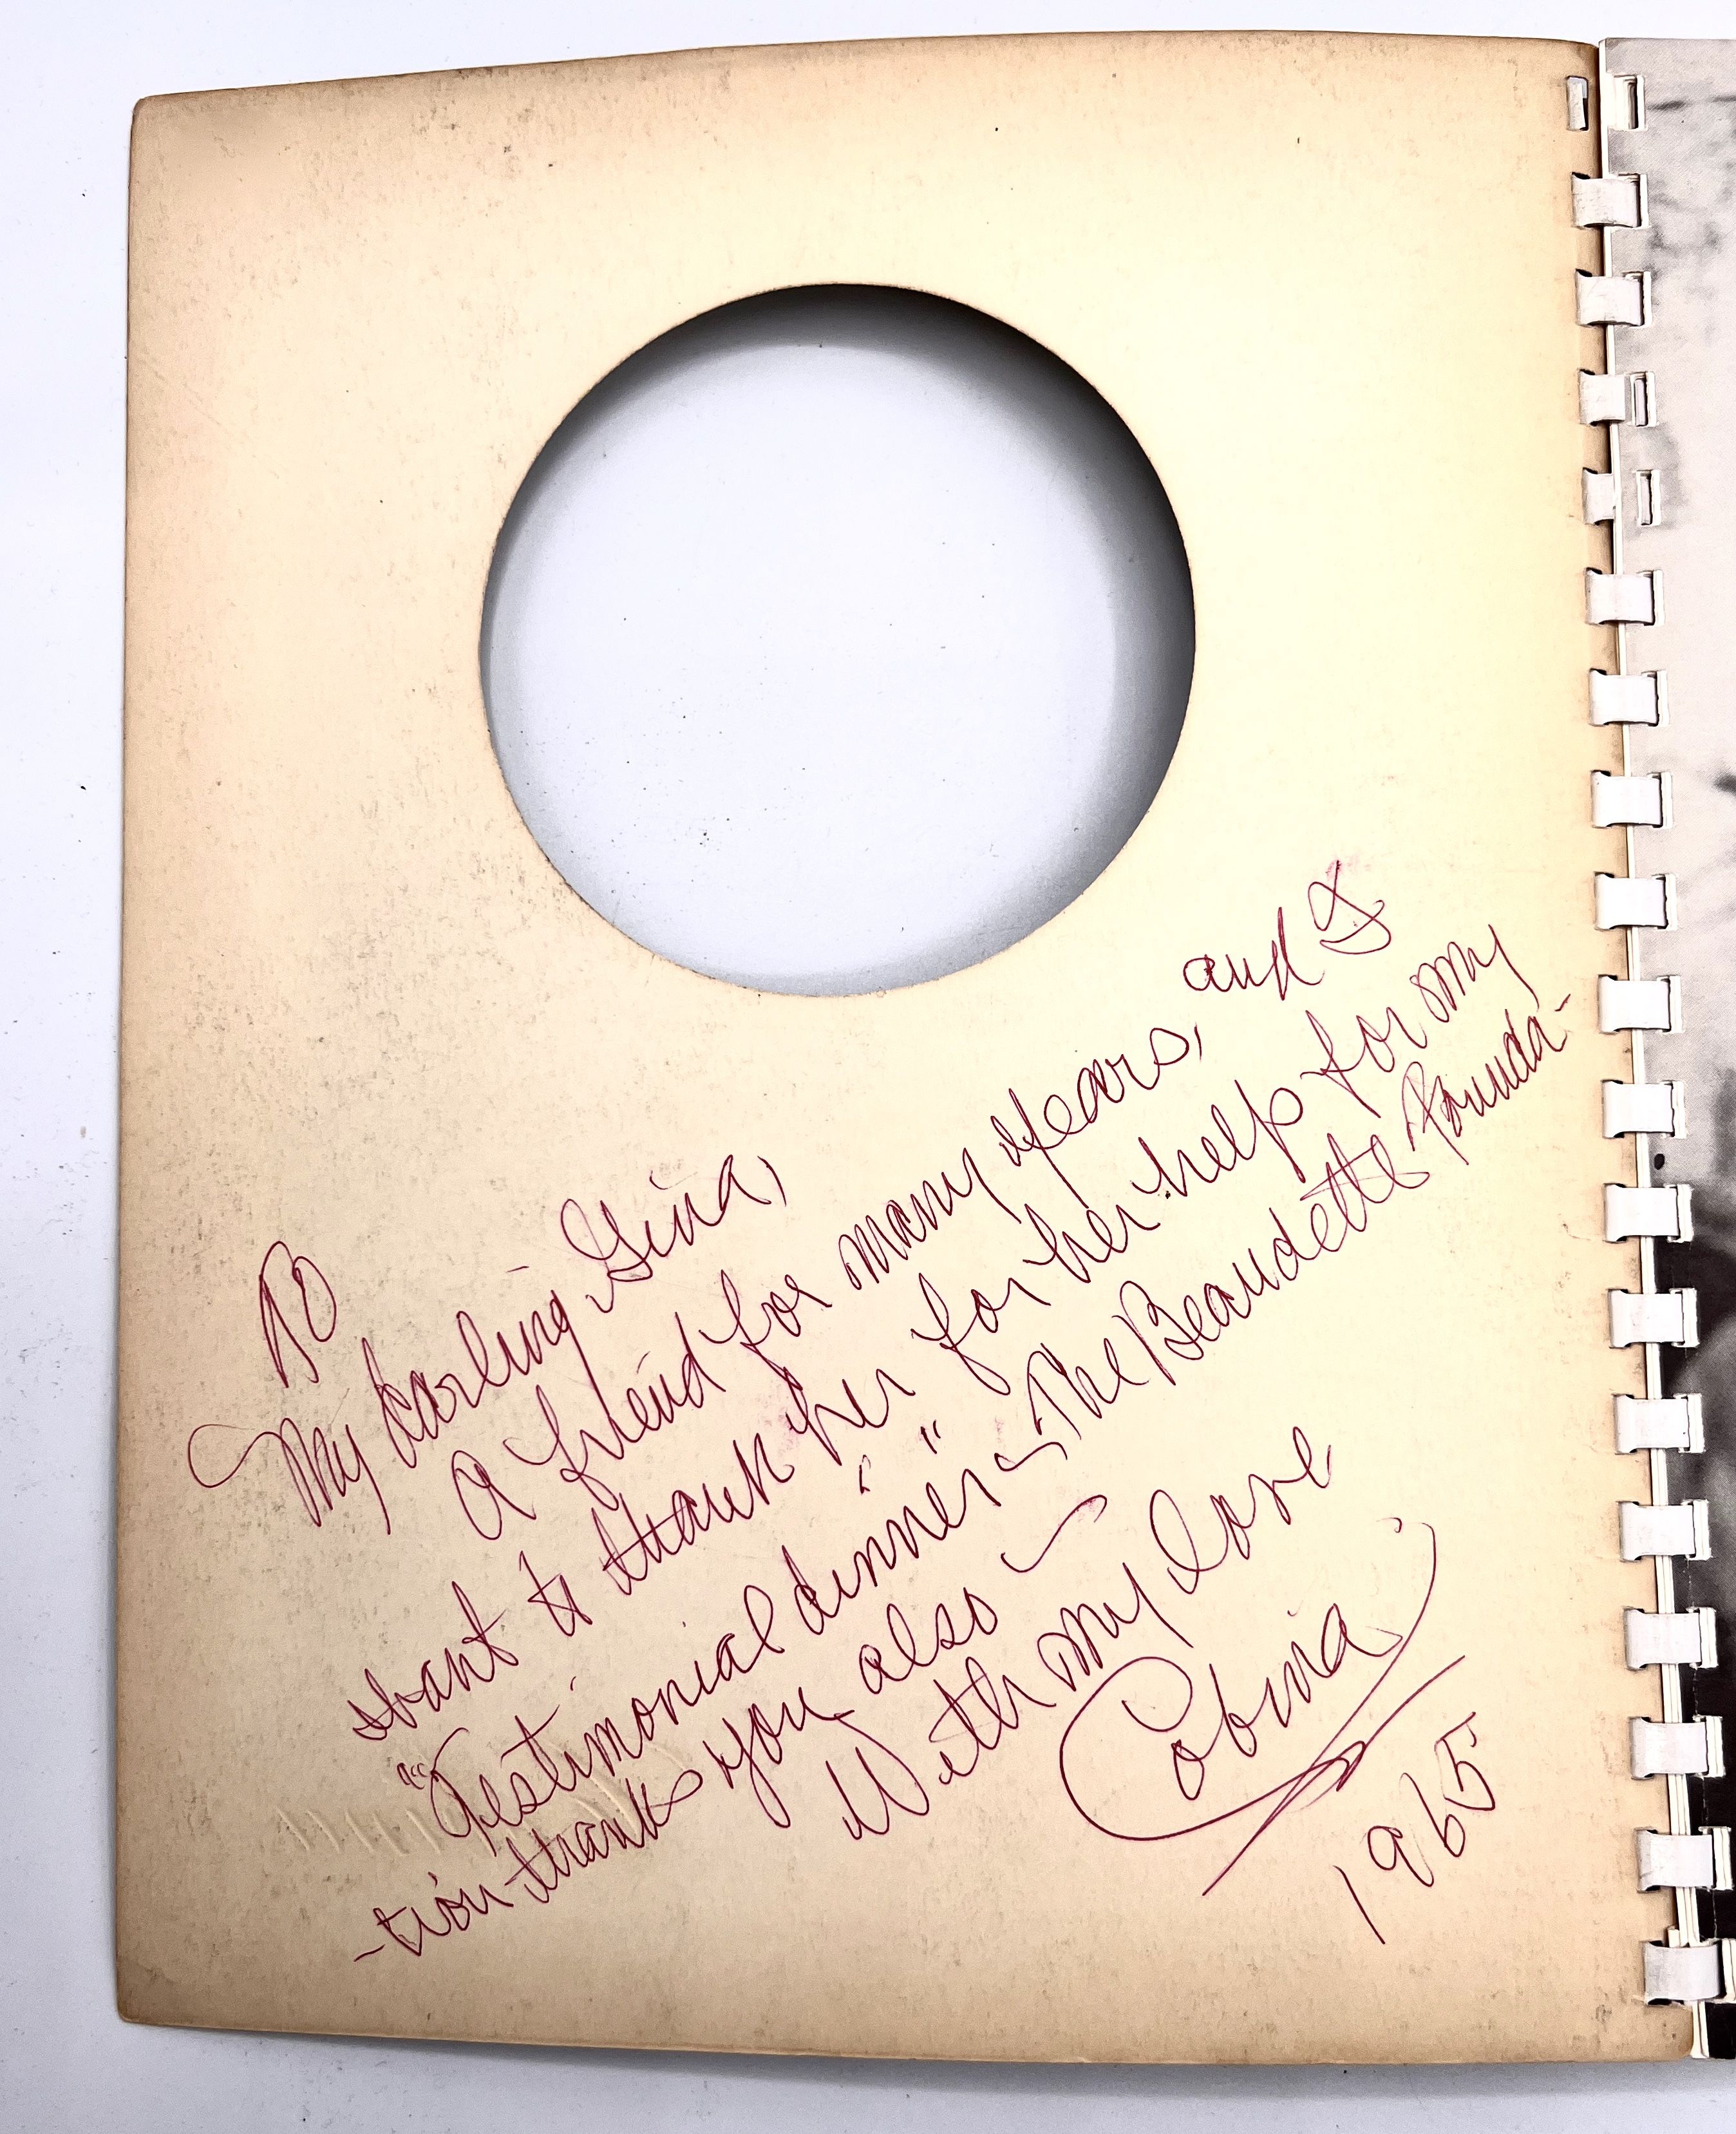 To
My darling Gina,
A friend for many years, and I
want to thank her for her help for my
"Testimonial dinner" - The Beaudette Founda-
-tion thanks you also -
With my love
Cobina
1965